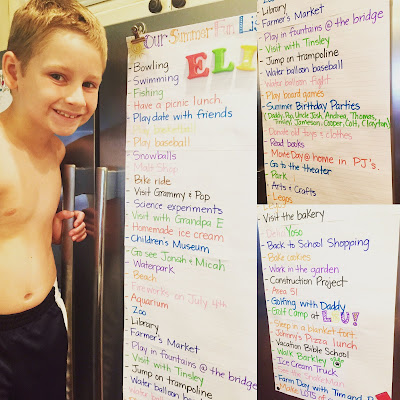 Our Summer Fun Li
ELI
- Bowling
- Swimming
- Fishing
- Have a picnic lunch.
- Playdate with friends
- Play basketball
- Play baseball
- Snowballs
- Malt Shop
- Bike ride
- Visit Grammy & Pop
- Science experiments
- Visit with Grandpa E
- Homemade ice cream
- Children's Museum
- Go see Jonah & Micah
- Waterpark
- Beach
- Fireworks on July 4th
- Aquarium
- Zoo
- Library
- Farmer's Market
- Play in fountains @ the bridge
- Visit with Tinsley
- Jump on trampoline
- Water balloon baseball
- Water balloon
- Play board
- Library
- Farmer's Market
- Play in fountains @ the bridge
- Visit with Tinsley
- Jump on trampoline
- Water balloon baseball
- Water balloon fight
- Play board games
- Summer Birthday Parties
(Daddy, Pio, Uncle Josh, Andrea, Thomas,
Jameson, Cooper, Colt, Clayton)
- Donate old toys & clothes
- Read books
- Movie Day @ home in PJ's.
- Go to the theater
- Park
- Arts & Crafts
- Legos
- Visit the bakery
- Yoso
- Back to School Shopping
- Bake cookies
- Work in the garden
- Construction Project
- Area 51
- Golfing with Daddy
- Golf Camp at L U!
- Sleep in a blanket fort
- Johnny's Pizza lunch
- Vacation Bible School
- Walk Barkley
- Ice Cream Truck
- See the
- Farm Day with Tim and
- Make LOTS of